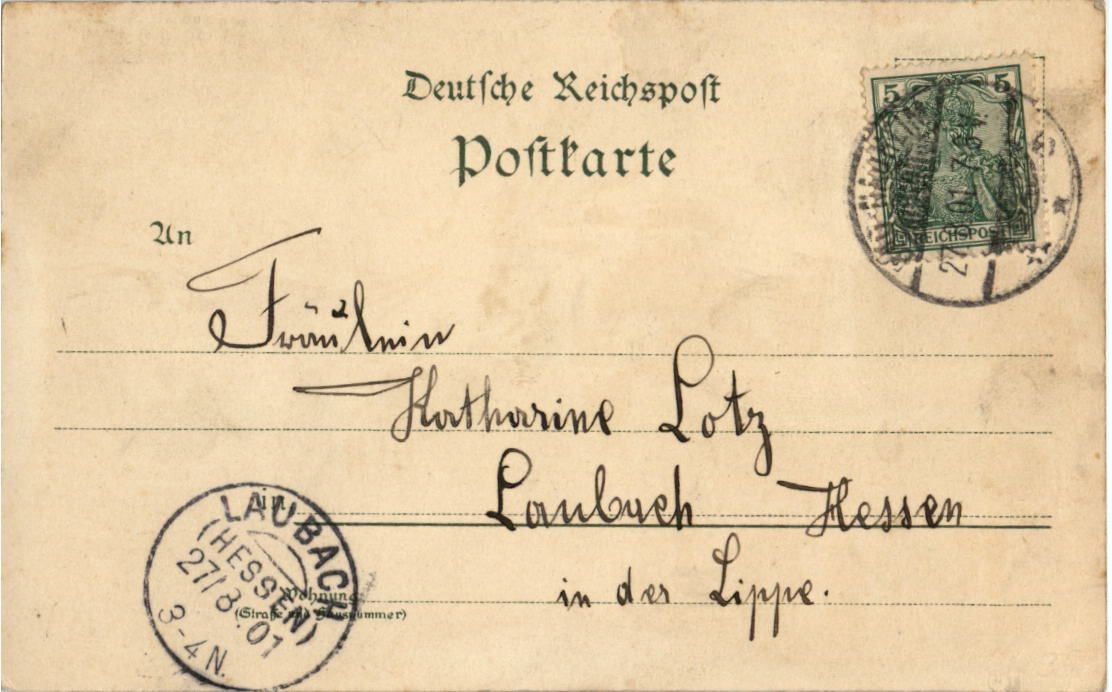 Deutsche Reichspost
Postkarte
5 5
REICHSPOST
27 01
An
Fräulein
Katharine Lotz
in
Laubach Hessen
in der Lippe.
Wohnung
(Straße und Hausnummer)
LAUBACH
(HESSEN)
27/8.01
3-4N.